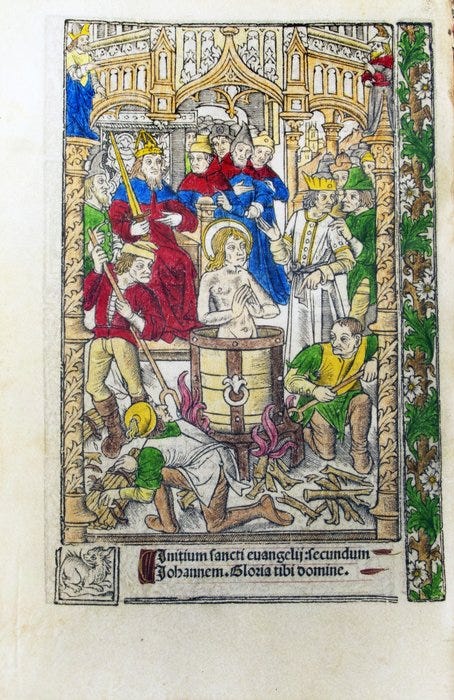 Initium sancti euangelij: secundum
Johannem. Gloria tibi domine.